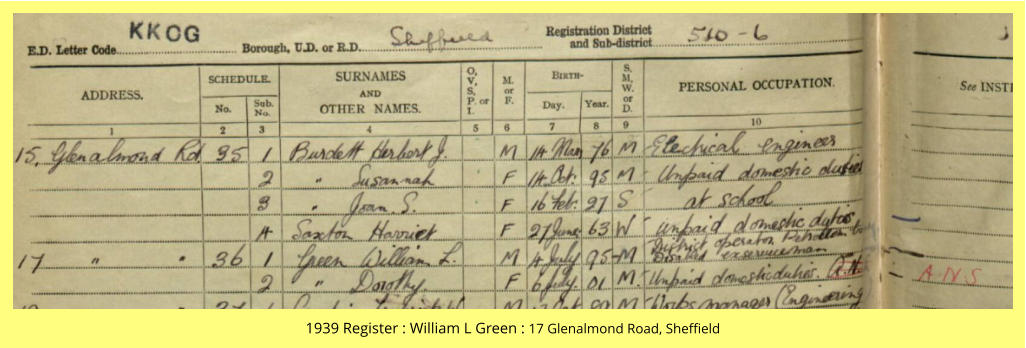 E.D. Letter Code KKOG Borough, U.D. or R.D. Sheffield Registration District and Sub-district 510-6
ADDRESS. SCHEDULE. No. Sub. No. SURNAMES AND OTHER NAMES. O, V, S, P. or I. M. or F. BIRTH- Day. Year. S. M, W. or D. PERSONAL OCCUPATION. See INSTR
1 2 3 4 5 6 7 8 9 10
15, Glenalmond Rd. 35 1 Burdett Herbert J. M 14 Mar 76 M Electrical engineer
2 " Susannah F 14 Oct. 95 M Unpaid domestic duties
3 " Joan S. F 16 Feb. 27 S at school
4 Saxton Harriet F 27 June 63 W unpaid domestic duties
17 " " 36 1 Green William L. M 4 July 95 M District operator Disabled exserviceman
2 " Dorothy F 6 July 01 M. Unpaid domestic duties. A.N.S
M Works manager (Engineering
1939 Register : William L Green : 17 Glenalmond Road, Sheffield